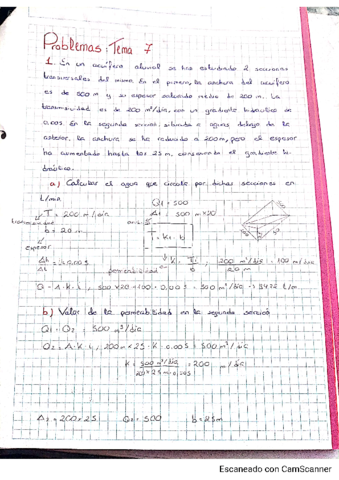 Problemas: Tema 7
1. En un acuífero aluvial se han estudiado 2 secciones
transversales del mismo. En el primero, la anchura del acuífero
es de 500 m y su espesor saturado medio de 200 m. La
transmisividad es de 200 m²/día, con un gradiente hidráulico de
0.005. En la segunda sección situada aguas debajo de la
anterior, la anchura se ha reducido a 200m, pero el espesor
ha aumentado hasta los 25 m, conservando el gradiente hi-
dráulico.
a) Calcular el agua que circula por dichas secciones en
L/min
Q1 = 500
T = 200 m²/día
A1 = 500 m × 20
b = 20 m
T = K · b
espesor
= 0.005
permeabilidad
K = T/b = 200 m²/día / 20 m = 10 m/día
Q = A · K · i = 500 × 20 × 0.005 = 500 m³/día
b) Valor de la permeabilidad en la segunda sección
Q1 = Q2 = 500 m³/día
Q2 = A · K · i = 200m × 25 · K · 0.005 = 500 m³/día
K = 500 m³/día = 200 m/día
A2 = 200 × 25 Q2 = 500 b = 25m
Escaneado con CamScanner